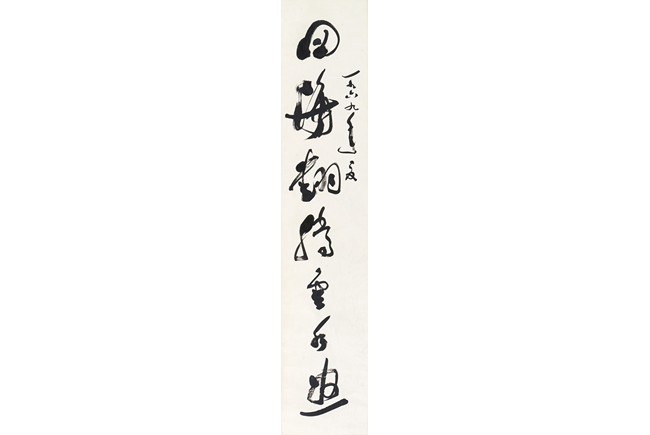 一九六九年夏
四海翻騰雲水怒